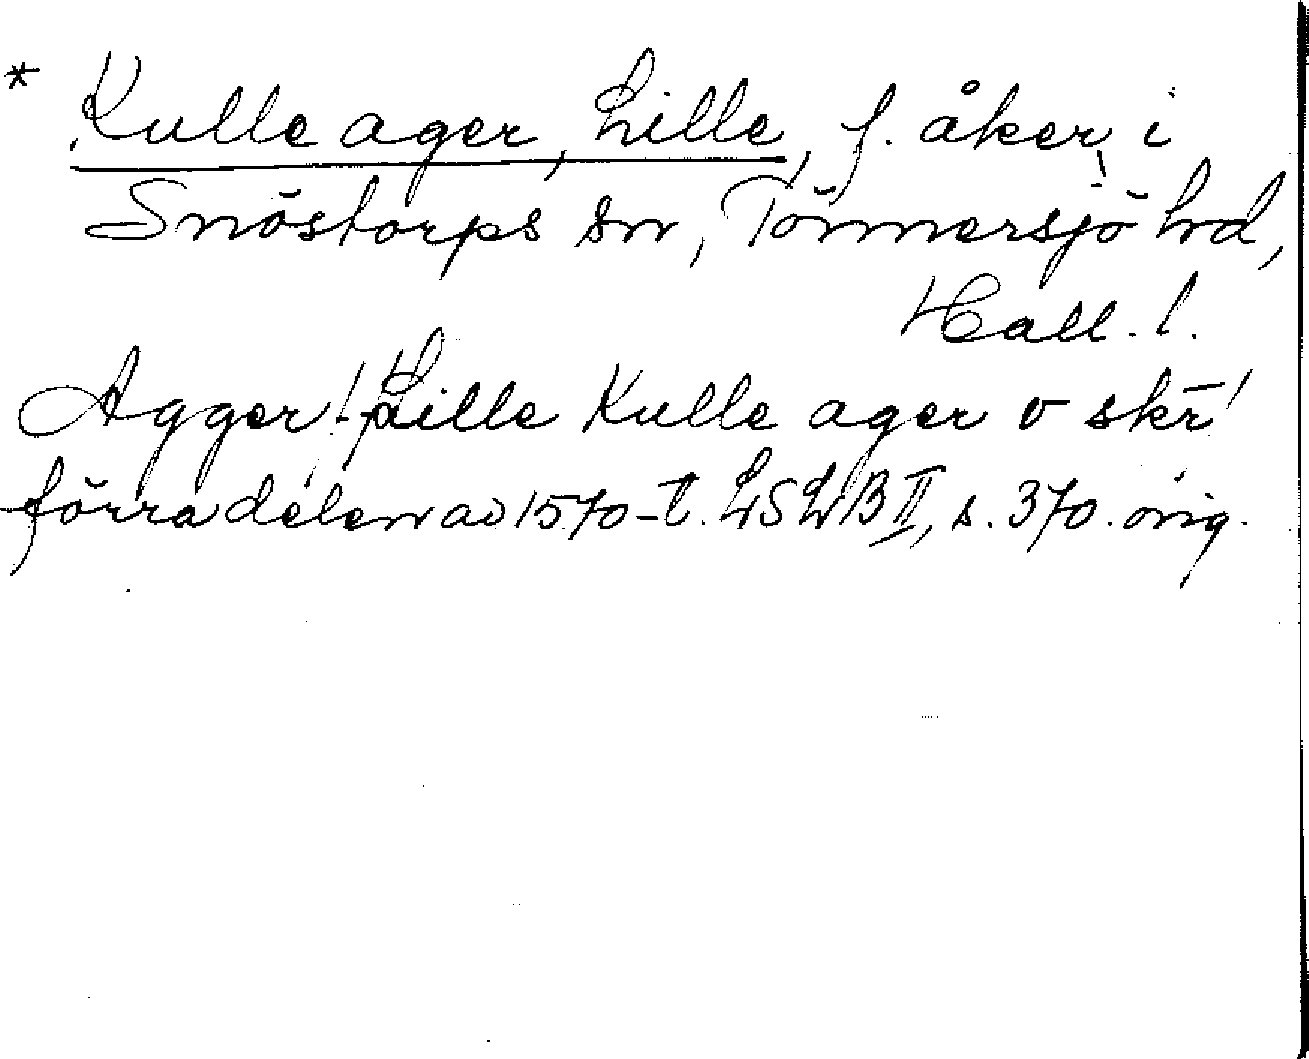 * Kulle ager, Lille, f. åker i
Snöstorps sn, Tönnersjö hd,
Hall. l.
Agger! Lille Kulle ager v skr!
förra delen av 1570-t. LSLB II, s. 370. orig.